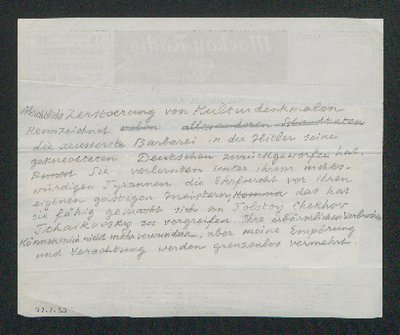 Absichtliche Zerstoerung von Kulturdenkmalen
Kennzeichnet neben allen anderen Schandtaten
die aeusserste Barbarei in die Hitler seine
geknechteten Deutschen zurückgeworfen hat.
Sie verlernten unter ihrem nichts-
würdigen Tyrannen die Ehrfurcht vor ihren
eigenen geistigen Meistern, das hat
sie fähig gemacht sich an Tolstoy Chekhov
Tchaikovsky zu vergreifen. Ihre
Können mich nicht mehr verwundern, aber meine Empörung
und Verachtung werden grenzenlos vermehrt.
Mackay Radio